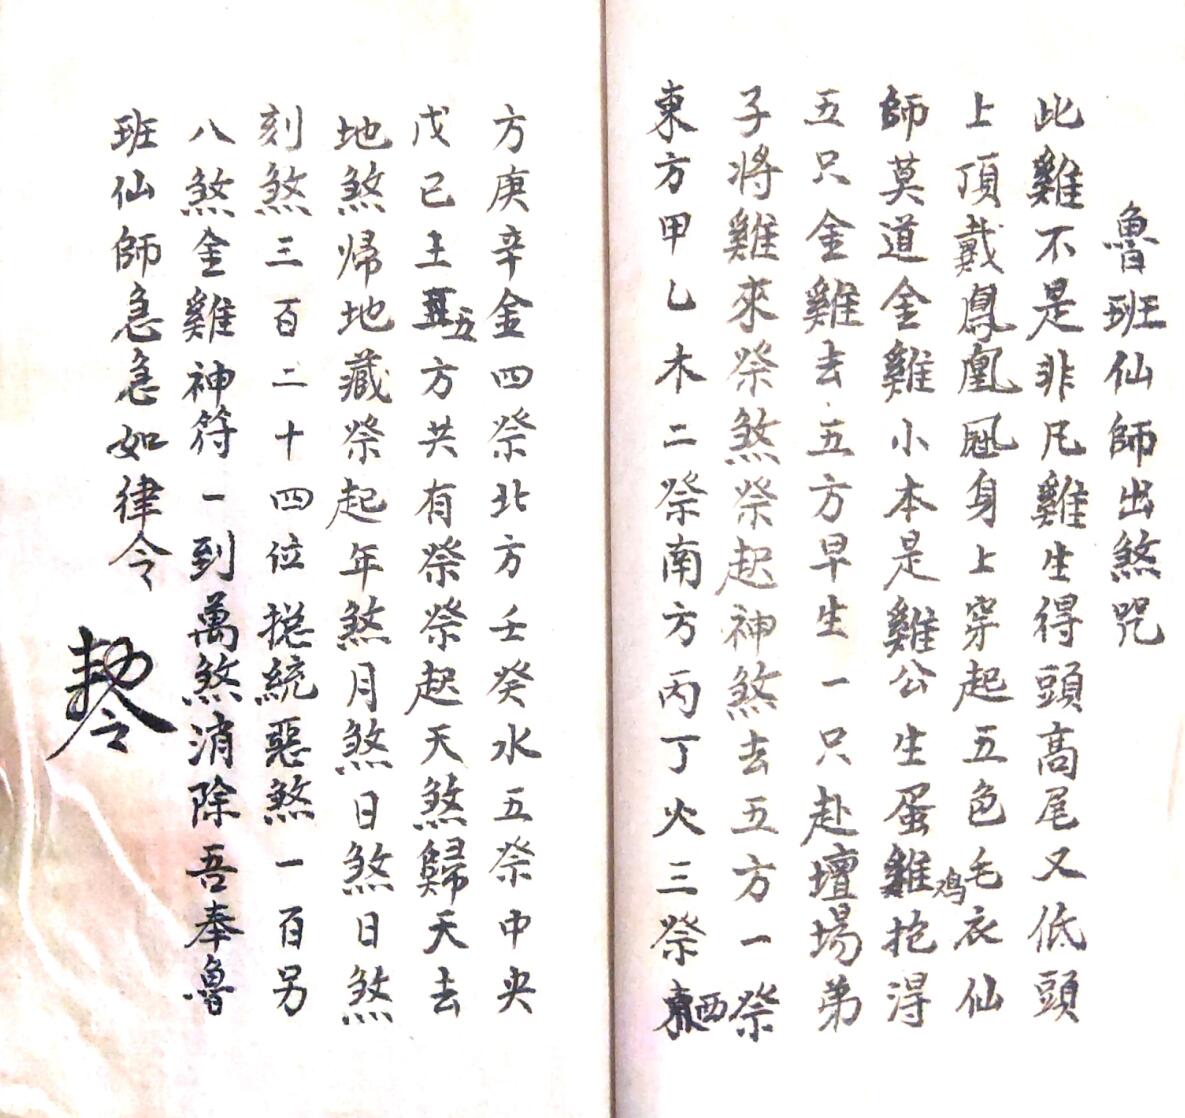 魯班仙師出煞咒
此雞不是非凡雞生得頭高尾又低頭
上頂戴鳳凰冠身上穿起五色毛衣仙
師莫道金雞小本是雞公生蛋雞鸡抱得
五只金雞去五方早生一只赴壇場弟
子將雞來祭煞祭起神煞去五方一祭
東方甲乙木二祭南方丙丁火三祭西
方庚辛金四祭北方壬癸水五祭中央
戊已土五方共有祭祭起天煞歸天去
地煞帰地藏祭起年煞月煞日煞日煞
刻煞三百二十四位捴統惡煞一百另
八煞金雞神符一到萬煞消除吾奉魯
班仙師急急如律令